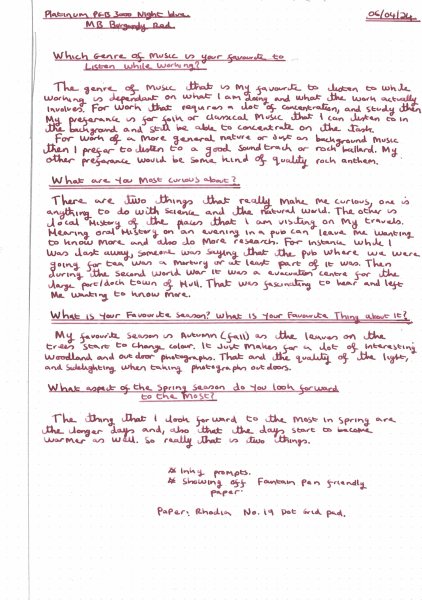 Platinum PGB 3000 Night blue 06/04/24
MB Burgundy Red
Which Genre of Music is your favourite to
Listen while working?
The genre of Music that is My favourite to listen to while
working is dependant on what I am doing and what the work actually
involves. For work that requires a lot of concentration, and study then
My preferance is for folk or classical Music that I can listen to in
the background and still be able to concentrate on the task.
For work of a more general nature or just as background Music
then I prefer to listen to a good soundtrack or rock ballard. My
other preferance would be some kind of quality rock anthem.
What are you Most curious about?
There are two things that really Make me curious, one is
anything to do with science and the natural world. The other is
local History of the places that I am visiting on My travels.
Hearing oral History on an evening in a pub can leave me wanting
to know more and also do More research. For instance while I
was last away, someone was saying that the pub where we were
going for tea was a Mortury or at least part of it was. Then
during the Second World War it was a evacuation centre for the
large port/doch town of Hull. That was fascinating to hear and left
Me wanting to know more.
What is Your Favourite Season? What is Your Favourite Thing about It?
My favourite season is Autumn (fall) as the leaves on the
trees start to change colour. It Just Makes for a lot of interesting
Woodland and outdoor photographs. That and the quality of the light,
and sidelighting when taking photographs outdoors.
What aspect of the Spring Season do you look forward
to the Most?
The thing that I look forward to the Most in Spring are
the longer days and, also that the days start to become
warmer as well. So really that is two things.
* Inky prompts.
* Showing off Fountain Pen friendly
paper.
Paper: Rhodia No. 19 Dot Grid pad.